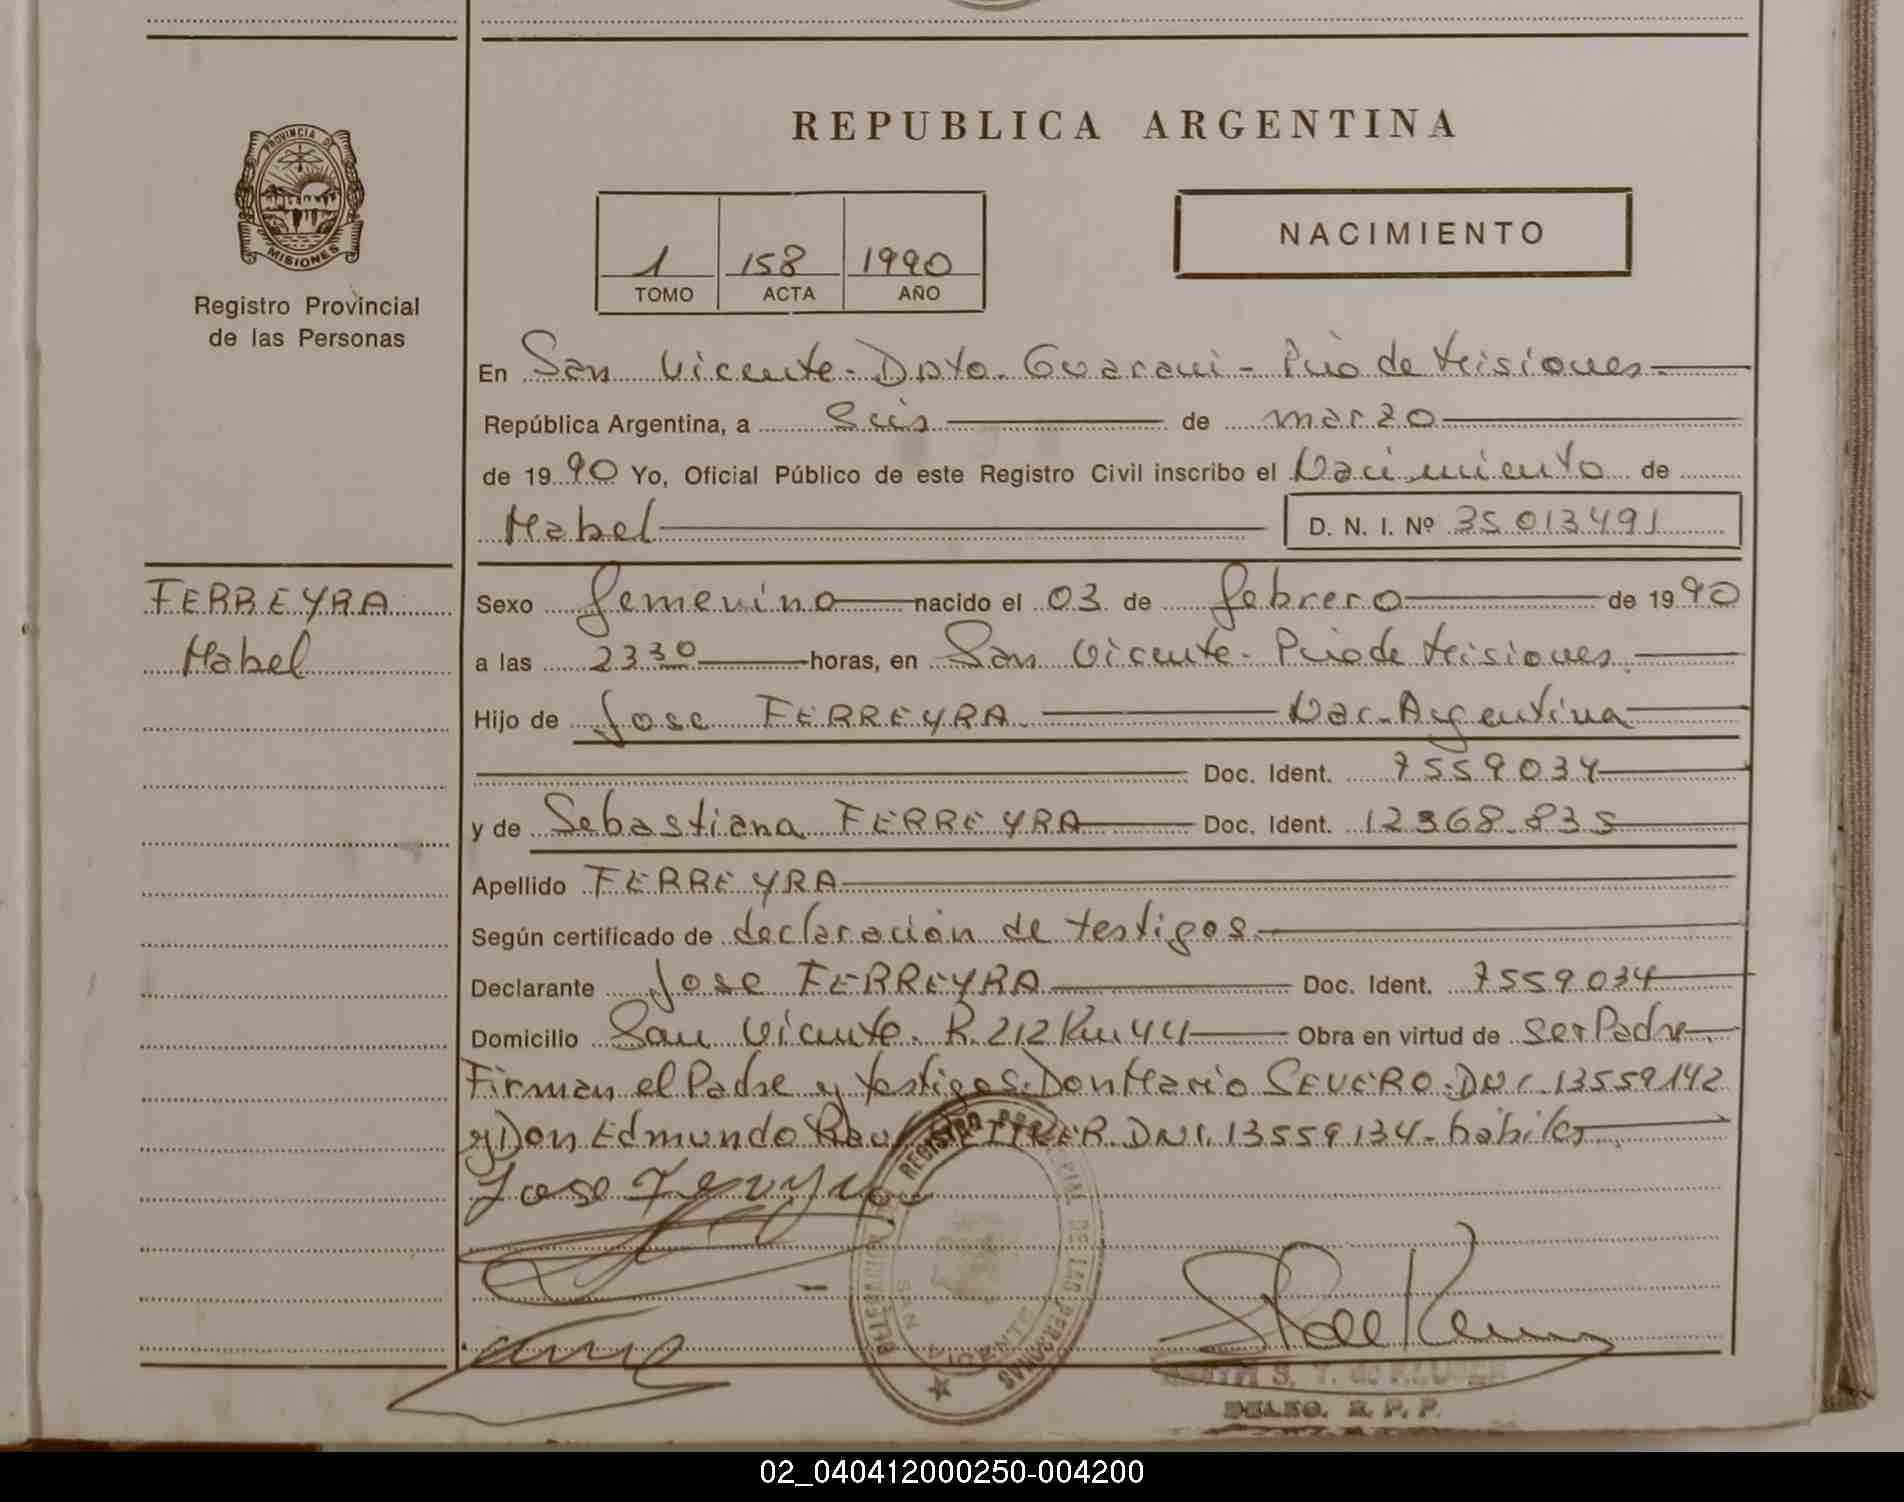 PROVINCIA DE
MISIONES
Registro Provincial
de las Personas
REPUBLICA ARGENTINA
1 158 1990
TOMO ACTA AÑO
NACIMIENTO
En San Vicente - Dpto. Guaraní - Pcia de Misiones
República Argentina, a Seis de marzo
de 1990 Yo, Oficial Público de este Registro Civil inscribo el Nacimiento de
Mabel D. N. I. Nº 35013491
FERREYRA
Mabel
Sexo femenino nacido el 03 de febrero de 1990
a las 23 30 horas, en San Vicente - Pcia de Misiones
Hijo de Jose FERREYRA Nac. Argentina
Doc. Ident. 7559034
y de Sebastiana FERREYRA Doc. Ident. 12368.835
Apellido FERREYRA
Según certificado de declaración de testigos
Declarante Jose FERREYRA Doc. Ident. 7559034
Domicilio San Vicente. R. 212 Km 44 Obra en virtud de ser Padre
Firman el Padre y testigos: Don Mario SEVERO. DNI. 13559142
y Don Edmundo DNI. 13559134 - habiles
Jose Ferreyra
REGISTRO PROVINCIAL DE LAS PERSONAS
SAN VICENTE
S. T. de
DELEG. R. P. P.
02_040412000250-004200